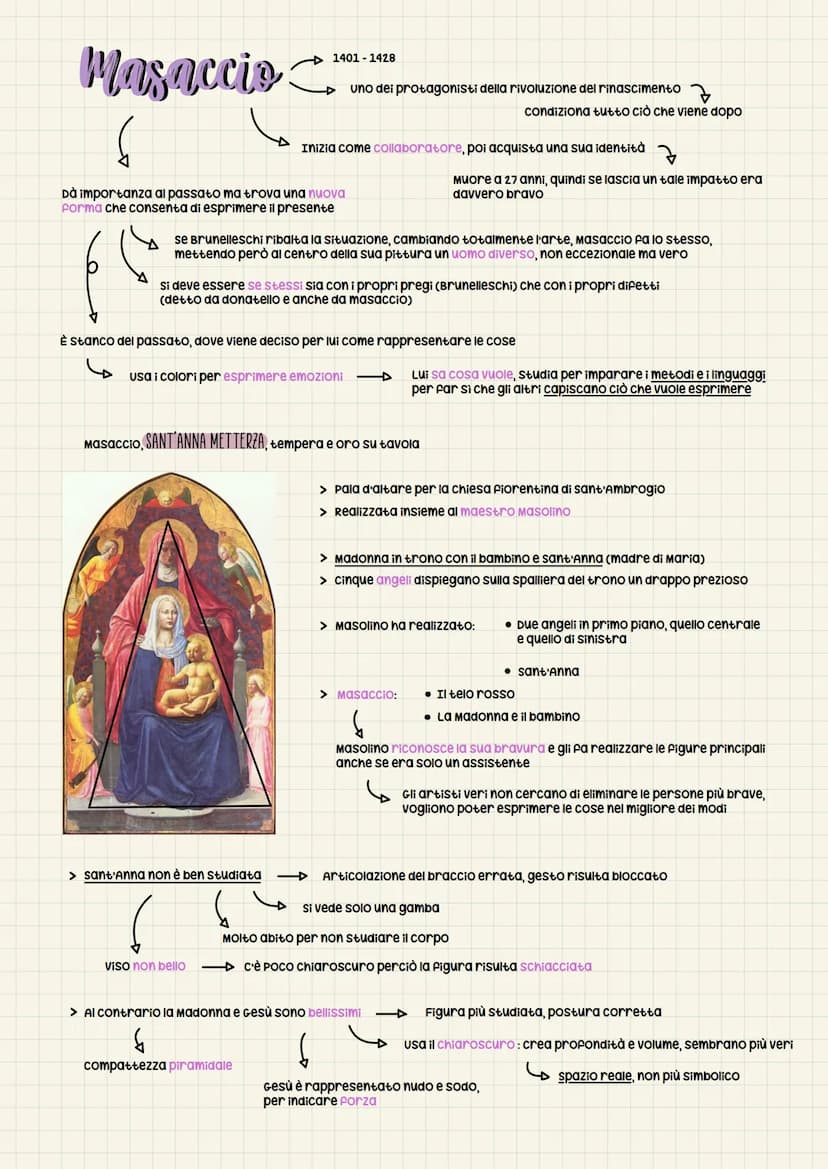 Masaccio
1401 - 1428
uno dei protagonisti della rivoluzione del rinascimento
condiziona tutto ciò che viene dopo
Inizia come collaboratore, poi acquista una sua identità
Muore a 27 anni, quindi se lascia un tale impatto era
davvero bravo
Dà importanza al passato ma trova una nuova
forma che consenta di esprimere il presente
se Brunelleschi ribalta la situazione, cambiando totalmente l'arte, Masaccio fa lo stesso,
mettendo però al centro della sua pittura un uomo diverso, non eccezionale ma vero
si deve essere se stessi sia con i propri pregi (Brunelleschi) che con i propri difetti
(detto da donatello e anche da masaccio)
È stanco del passato, dove viene deciso per lui come rappresentare le cose
usa i colori per esprimere emozioni
Lui sa cosa vuole, studia per imparare i metodi e i linguaggi
per far sì che gli altri capiscano ciò che vuole esprimere
Masaccio, SANT'ANNA METTERZA, tempera e oro su tavola
> Pala d'altare per la chiesa fiorentina di sant'Ambrogio
> Realizzata insieme al maestro Masolino
> Madonna in trono con il bambino e sant'Anna (madre di Maria)
> cinque angeli dispiegano sulla spalliera del trono un drappo prezioso
> Masolino ha realizzato:
• Due angeli in primo piano, quello centrale
e quello di sinistra
• sant'Anna
> Masaccio:
• Il telo rosso
• La Madonna e il bambino
Masolino riconosce la sua bravura e gli fa realizzare le figure principali
anche se era solo un assistente
Gli artisti veri non cercano di eliminare le persone più brave,
vogliono poter esprimere le cose nel migliore dei modi
> sant'Anna non è ben studiata
Articolazione del braccio errata, gesto risulta bloccato
si vede solo una gamba
Molto abito per non studiare il corpo
viso non bello
c'è poco chiaroscuro perciò la figura risulta schiacciata
> Al contrario la Madonna e Gesù sono bellissimi
Figura più studiata, postura corretta
usa il chiaroscuro : crea profondità e volume, sembrano più veri
compattezza piramidale
spazio reale, non più simbolico
Gesù è rappresentato nudo e sodo,
per indicare forza